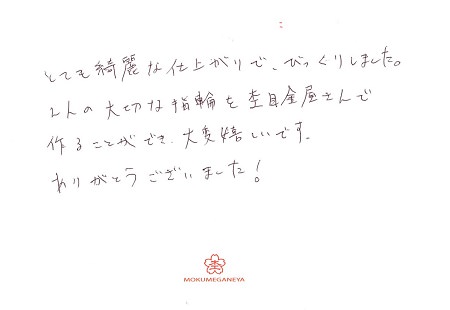 とても綺麗な仕上がりで、びっくりしました。
2人の大切な指輪を杢目金屋さんで
作ることができ、大変嬉しいです。
ありがとうございました!
MOKUMEGANEYA